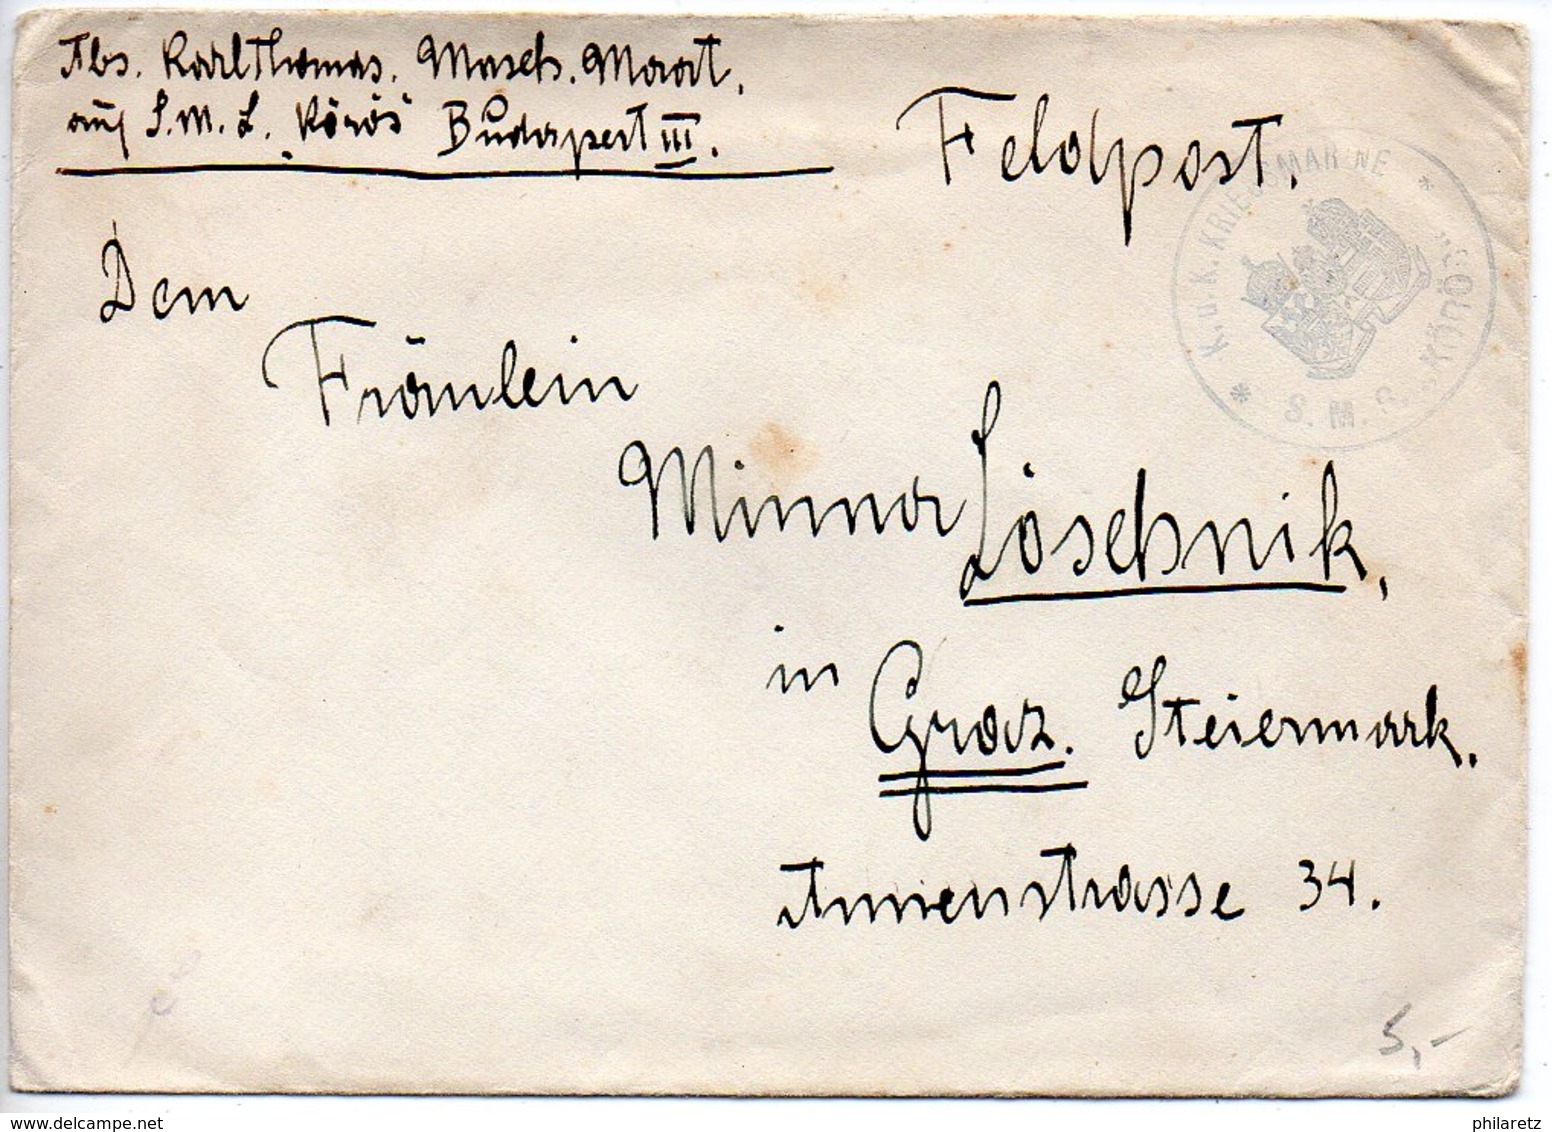 Abs. Karl Thomas. Masch. Maat.
auf S.M.S. „Körös" Budapest III.
Feldpost.
K.u.K. KRIEGSMARINE
S.M.S. „KÖRÖS"
Dem
Fräulein
Minna Löschnik,
in Graz. Steiermark.
Annenstrasse 34.
5,-
www.delcampe.net
philaretz